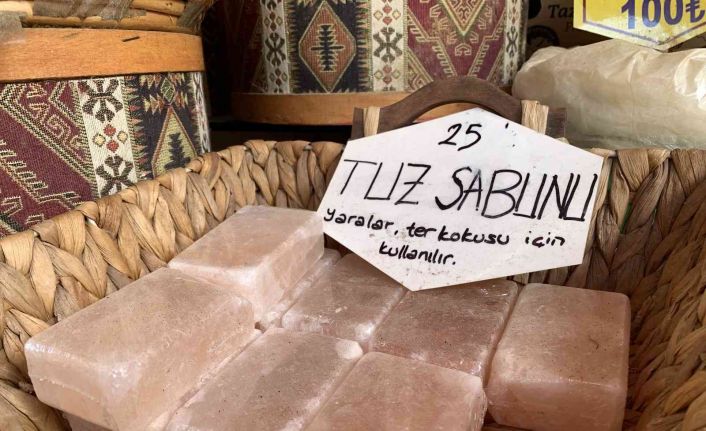 Taz
100₺
25
TUZ SABUNU
yaralar, ter kokusu için
kullanılır.